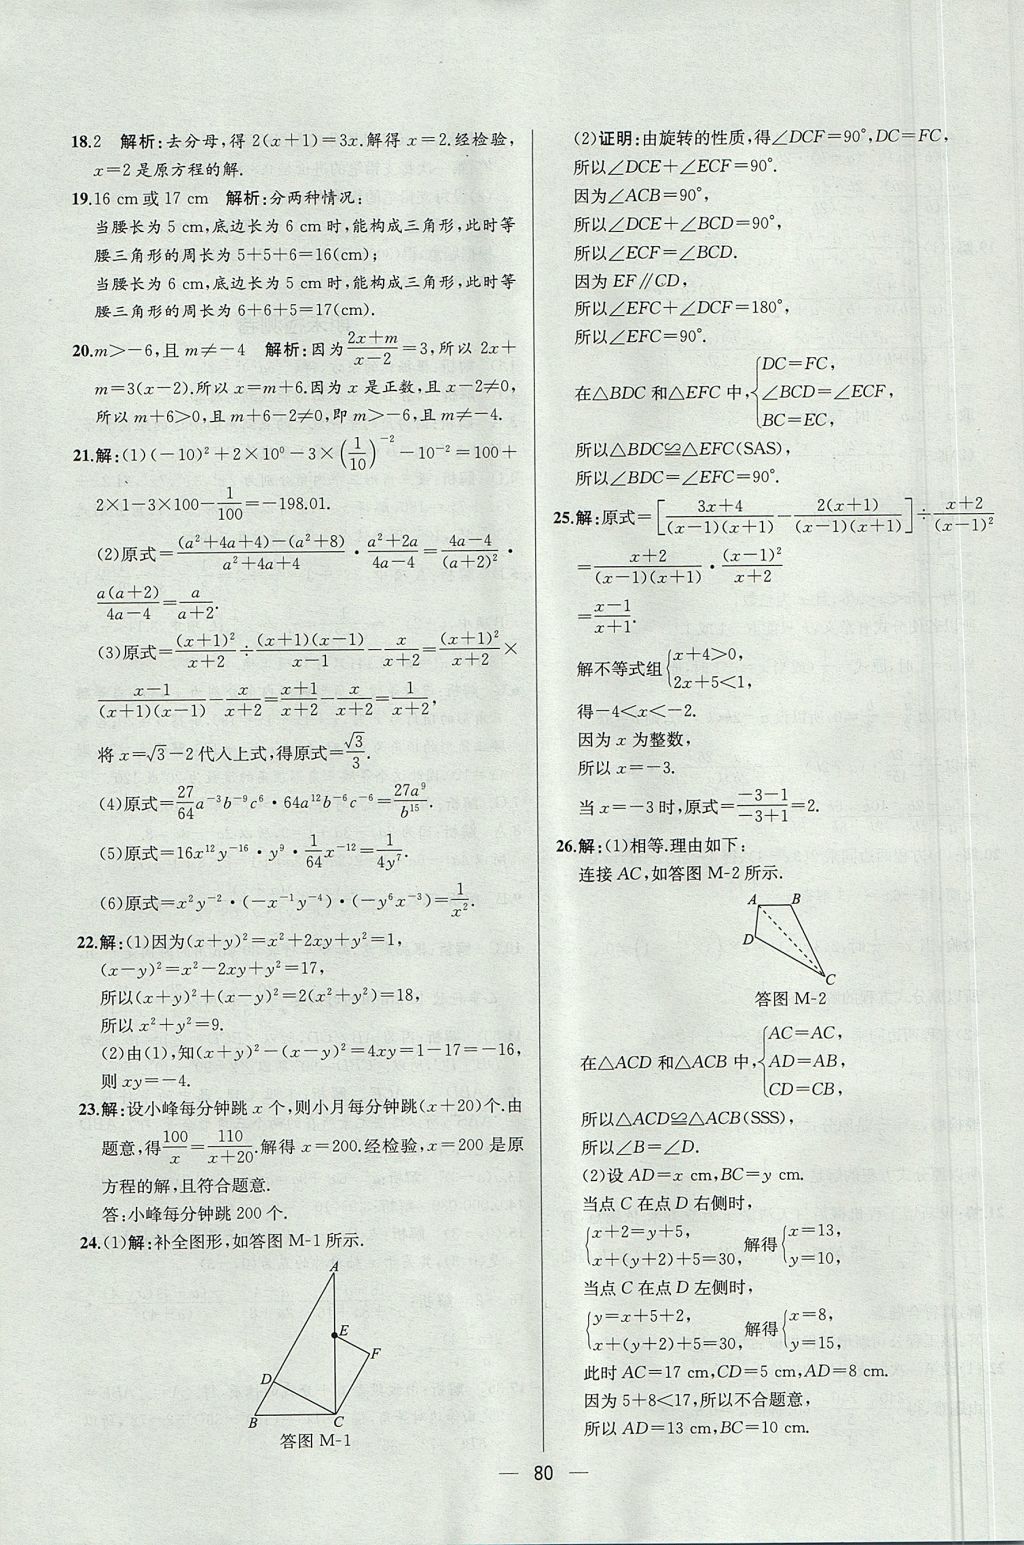 18.2　解析:去分母,得 2(x+1)=3x.解得 x=2.经检验,
x=2 是原方程的解.
19.16 cm 或 17 cm　解析:分两种情况:
当腰长为 5 cm,底边长为 6 cm 时,能构成三角形,此时等
腰三角形的周长为 5+5+6=16(cm);
当腰长为 6 cm,底边长为 5 cm 时,能构成三角形,此时等
腰三角形的周长为 6+6+5=17(cm).
20.m>-6,且 m≠-4　解析:因为 (2x+m)/(x-2)=3,所以 2x+
m=3(x-2).所以 x=m+6.因为 x 是正数,且 x-2≠0,
所以 m+6>0,且 m+6-2≠0,即 m>-6,且 m≠-4.
21.解:(1)(-10)²+2×10⁰-3×(1/10)⁻²-10⁻²=100+
2×1-3×100-1/100=-198.01.
(2)原式=((a²+4a+4)-(a²+8))/(a²+4a+4)·(a²+2a)/(4a-4)=(4a-4)/(a+2)²·
a(a+2)/(4a-4)=a/(a+2).
(3)原式=(x+1)²/(x+2)÷(x+1)(x-1)/(x-1)-x/(x+2)=(x+1)²/(x+2)×
(x-1)/((x+1)(x-1))-x/(x+2)=(x+1)/(x+2)-x/(x+2)=1/(x+2),
将 x=√3-2 代入上式,得原式=√3/3.
(4)原式=27/64 a⁻³b⁻⁹c⁶·64a¹²b⁻⁶c⁻⁶=27a⁹/b¹⁵.
(5)原式=16x¹²y⁻¹⁶·y⁹·1/64 x⁻¹²=1/(4y⁷).
(6)原式=x²y⁻²·(-x⁻¹y⁻⁴)·(-y⁶x⁻³)=1/x².
22.解:(1)因为(x+y)²=x²+2xy+y²=1,
(x-y)²=x²-2xy+y²=17,
所以(x+y)²+(x-y)²=2(x²+y²)=18,
所以 x²+y²=9.
(2)由(1),知(x+y)²-(x-y)²=4xy=1-17=-16,
则 xy=-4.
23.解:设小峰每分钟跳 x 个,则小月每分钟跳(x+20)个.由
题意,得 100/x=110/(x+20).解得 x=200.经检验,x=200 是原
方程的解,且符合题意.
答:小峰每分钟跳 200 个.
24.(1)解:补全图形,如答图 M-1 所示.
A
E
F
D
B
C
答图 M-1
(2)证明:由旋转的性质,得∠DCF=90°,DC=FC,
所以∠DCE+∠ECF=90°.
因为∠ACB=90°,
所以∠DCE+∠BCD=90°.
所以∠ECF=∠BCD.
因为 EF∥CD,
所以∠EFC+∠DCF=180°,
所以∠EFC=90°.
在△BDC 和△EFC 中,{DC=FC,
∠BCD=∠ECF,
BC=EC,
所以△BDC≌△EFC(SAS),
所以∠BDC=∠EFC=90°.
25.解:原式=[(3x+4)/((x-1)(x+1))-2(x+1)/((x-1)(x+1))]÷(x+2)/(x-1)²
=(x+2)/((x-1)(x+1))·(x-1)²/(x+2)
=(x-1)/(x+1).
解不等式组{x+4>0,
2x+5<1,
得-4<x<-2.
因为 x 为整数,
所以 x=-3.
当 x=-3 时,原式=(-3-1)/(-3+1)=2.
26.解:(1)相等.理由如下:
连接 AC,如答图 M-2 所示.
A
B
D
C
答图 M-2
在△ACD 和△ACB 中,{AC=AC,
AD=AB,
CD=CB,
所以△ACD≌△ACB(SSS),
所以∠B=∠D.
(2)设 AD=x cm,BC=y cm.
当点 C 在点 D 右侧时,
{x+2=y+5,
x+(y+2)+5=30,
解得{x=13,
y=10,
当点 C 在点 D 左侧时,
{y=x+5+2,
x+(y+2)+5=30,
解得{x=8,
y=15,
此时 AC=17 cm,CD=5 cm,AD=8 cm.
因为 5+8<17,所以不合题意,
所以 AD=13 cm,BC=10 cm.
— 80 —